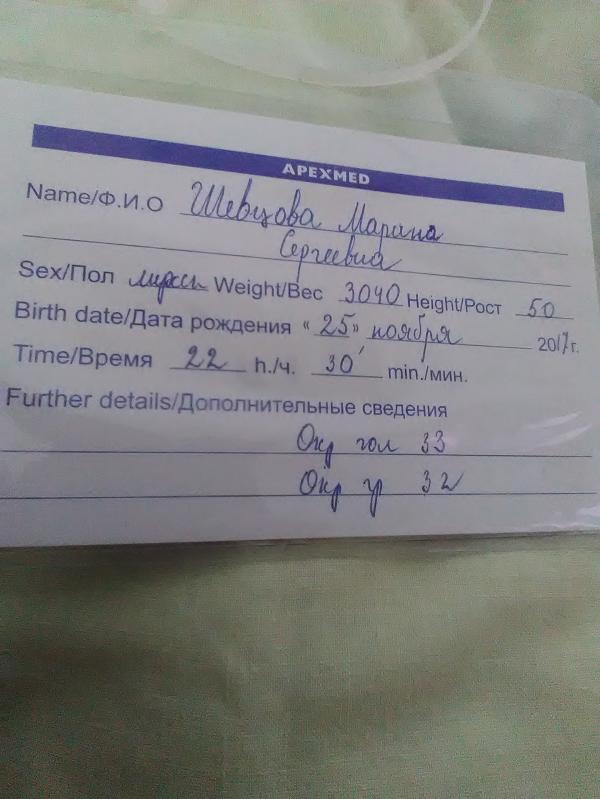 APEXMED
Name/Ф.И.О Шевцова Марина
Сергеевна
Sex/Пол Weight/Вес 3040 Height/Рост 50
Birth date/Дата рождения «25» ноября 2017г.
Time/Время 22 h./ч. 30' min./мин.
Further details/Дополнительные сведения
Окр гол 33
Окр гр 32